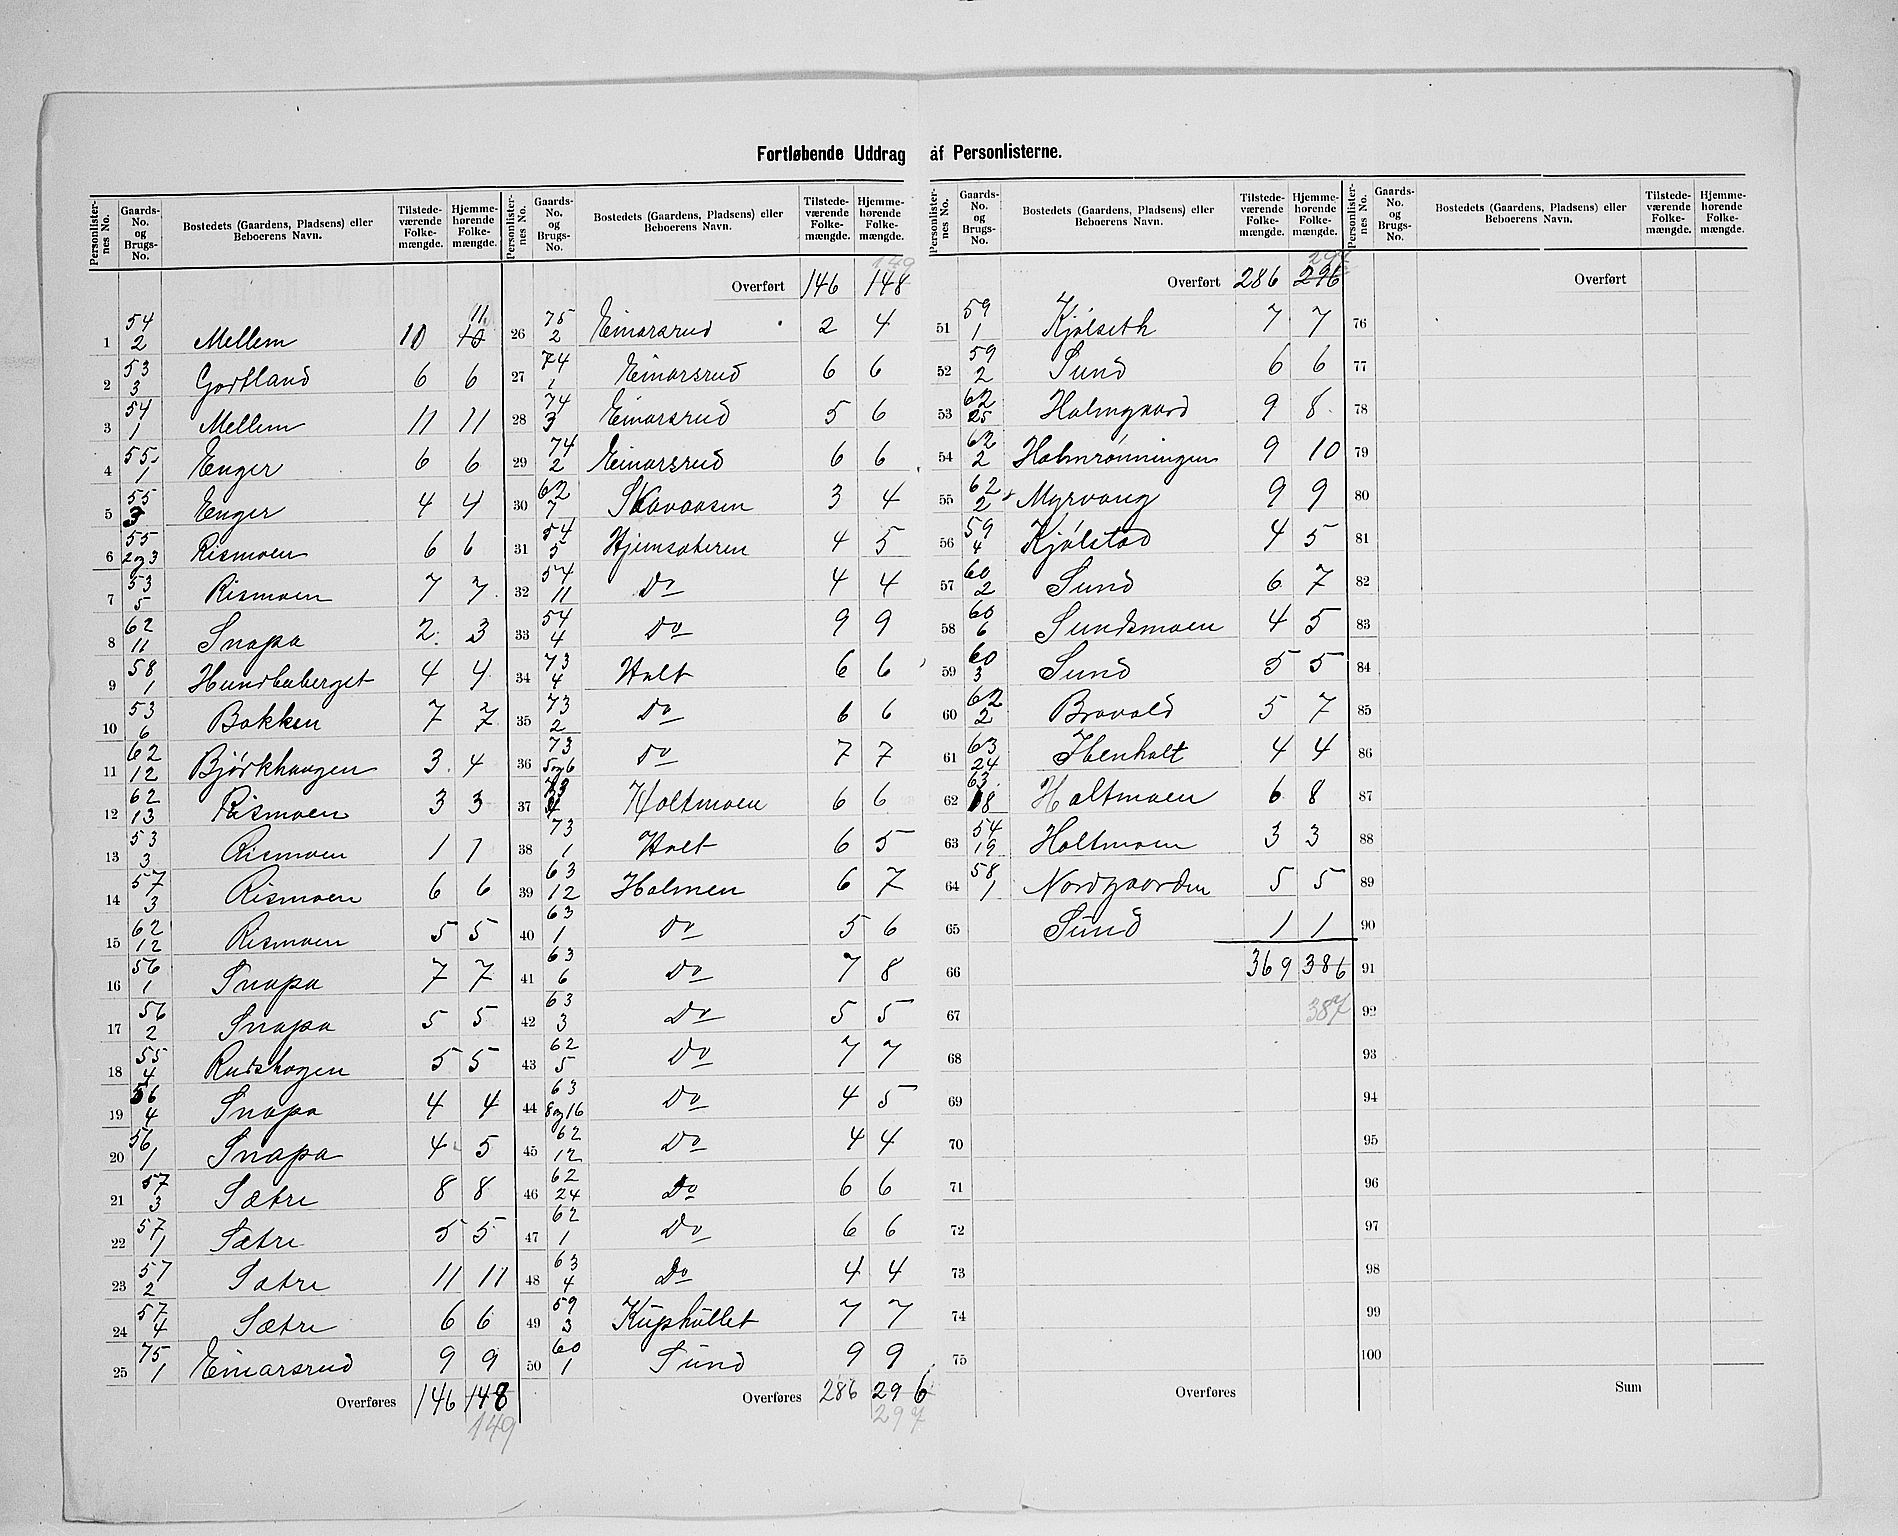 Fortløbende Uddrag af Personlisterne.
Personlister-nes No. | Gaards-No. og Brugs-No. | Bostedets (Gaardens, Pladsens) eller Beboerens Navn. | Tilstede-værende Folke-mængde. | Hjemme-hørende Folke-mængde.
1 | 54/2 | Mellem | 10 | 10 11
2 | 53/3 | Gortland | 6 | 6
3 | 54/1 | Mellem | 11 | 11
4 | 55/1 | Enger | 6 | 6
5 | 55/3 | Enger | 4 | 4
6 | 55/2og3 | Rismoen | 6 | 6
7 | 53/5 | Rismoen | 7 | 7
8 | 62/11 | Snapa | 2 | 3
9 | 58/1 | Hundbaberget | 4 | 4
10 | 53/6 | Bakken | 7 | 7
11 | 62/12 | Bjørkhaugen | 3 | 4
12 | 62/13 | Rismoen | 3 | 3
13 | 53/3 | Rismoen | 1 | 1
14 | 57/3 | Rismoen | 6 | 6
15 | 62/12 | Rismoen | 5 | 5
16 | 56/1 | Snapa | 7 | 7
17 | 56/2 | Snapa | 5 | 5
18 | 55/4 | Rudshagen | 5 | 5
19 | 56/4 | Snapa | 4 | 4
20 | 56/1 | Snapa | 4 | 5
21 | 57/3 | Sætre | 8 | 8
22 | 57/1 | Sætre | 5 | 5
23 | 57/2 | Sætre | 11 | 11
24 | 57/4 | Sætre | 6 | 6
25 | 75/1 | Einarsrud | 9 | 9
Overføres | 146 | 148
149
Personlister-nes No. | Gaards-No. og Brugs-No. | Bostedets (Gaardens, Pladsens) eller Beboerens Navn. | Tilstede-værende Folke-mængde. | Hjemme-hørende Folke-mængde.
149
Overført | 146 | 148
26 | 75/2 | Einarsrud | 2 | 4
27 | 74/1 | Einarsrud | 6 | 6
28 | 74/3 | Einarsrud | 5 | 6
29 | 74/2 | Einarsrud | 6 | 6
30 | 62/7 | Skavaasen | 3 | 4
31 | 54/5 | Hjemsæteren | 4 | 5
32 | 54/11 | Do | 4 | 4
33 | 54/4 | Do | 9 | 9
34 | 73/4 | Holt | 6 | 6
35 | 73/2 | Do | 6 | 6
36 | 73/5og6 | Do | 7 | 7
37 | 73 | Holtmoen | 6 | 6
38 | 73/1 | Holt | 6 | 5
39 | 63/12 | Holmen | 6 | 7
40 | 63/1 | Do | 5 | 6
41 | 63/6 | Do | 7 | 8
42 | 63/3 | Do | 5 | 5
43 | 62/5 | Do | 7 | 7
44 | 63/8og16 | Do | 4 | 5
45 | 62/12 | Do | 4 | 4
46 | 62/24 | Do | 6 | 6
47 | 62/1 | Do | 6 | 6
48 | 63/4 | Do | 4 | 4
49 | 59/3 | Kuphullet | 7 | 7
50 | 60/1 | Sund | 9 | 9
Overføres | 286 | 296
297
Personlister-nes No. | Gaards-No. og Brugs-No. | Bostedets (Gaardens, Pladsens) eller Beboerens Navn. | Tilstede-værende Folke-mængde. | Hjemme-hørende Folke-mængde.
297
Overført | 286 | 296
51 | 59/1 | Kjølseth | 7 | 7
52 | 59/2 | Sund | 6 | 6
53 | 62/25 | Holmgaard | 9 | 8
54 | 62/2 | Holmrønningen | 9 | 10
55 | 62/2 | Myrvang | 9 | 9
56 | 59/4 | Kjølstad | 4 | 5
57 | 60/2 | Sund | 6 | 7
58 | 60/6 | Sundsmoen | 4 | 5
59 | 60/3 | Sund | 5 | 5
60 | 62/2 | Bravold | 5 | 7
61 | 63/24 | Ibenholt | 4 | 4
62 | 63/18 | Holtmoen | 6 | 8
63 | 54/19 | Holtmoen | 3 | 3
64 | 58/1 | Nordgaarden | 5 | 5
65 | Sund | 1 | 1
66 | 369 | 386
67 | 387
68
69
70
71
72
73
74
75
Overføres
Personlister-nes No. | Gaards-No. og Brugs-No. | Bostedets (Gaardens, Pladsens) eller Beboerens Navn. | Tilstede-værende Folke-mængde. | Hjemme-hørende Folke-mængde.
Overført
76
77
78
79
80
81
82
83
84
85
86
87
88
89
90
91
92
93
94
95
96
97
98
99
100
Sum